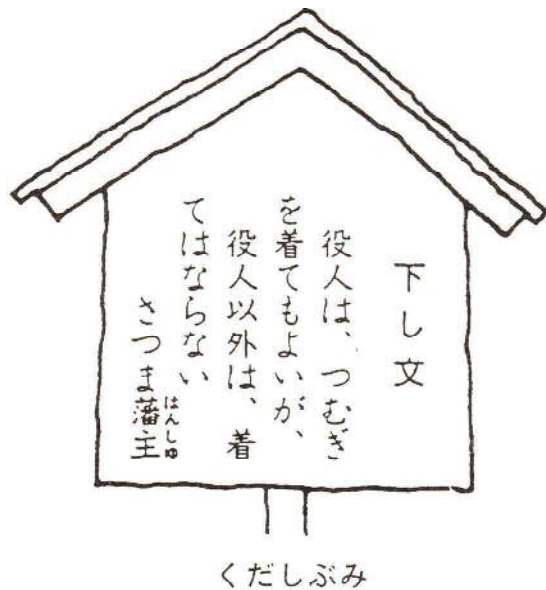 下し文
役人は、つむぎ
を着てもよいが、
役人以外は、着
てはならない
さつま藩主
はんしゅ
くだしぶみ